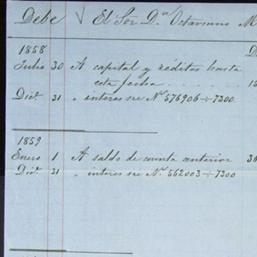 Debe El Sor Dn Octaviano M
1858
Julio 30 A capital y réditos hasta
esta fecha
Dice. 31 " interes sre No. 576906÷7300
1859
Enero 1 A saldo de cuenta anterior
Dice. 31 " interes sre No. 562003÷7300